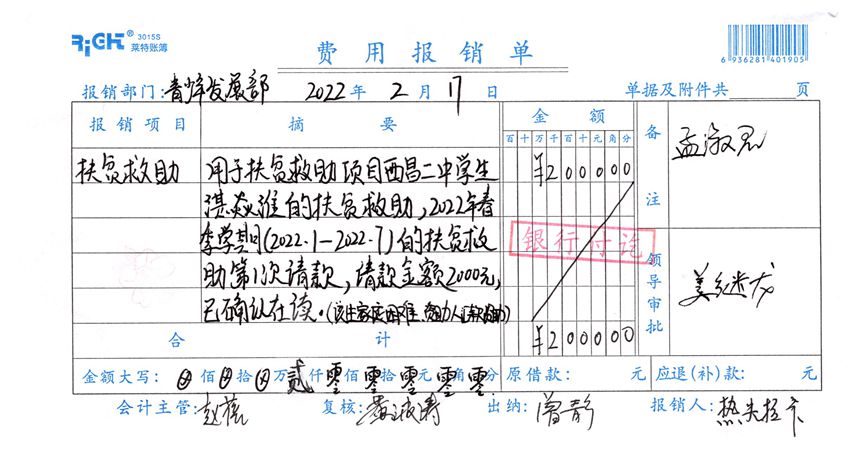 RiGHT® 3015S
莱特账簿
费用报销单
6 936281 401905
报销部门:青少年发展部 2022年2月17日 单据及附件共 页
报销项目 摘要 金额 备注
百十万千百十元角分
扶贫救助 用于扶贫救助项目西昌二中学生 ¥200000
的扶贫救助,2022年春
季学期(2022.1-2022.7)的扶贫救
助第1次请款,请款金额2000元,
已确认在读。
银行付讫
领导审批
合计 ¥200000
金额大写: 佰 拾 万贰仟零佰零拾零元零角零分 原借款: 元 应退(补)款: 元
会计主管: 复核: 出纳:曾静 报销人: